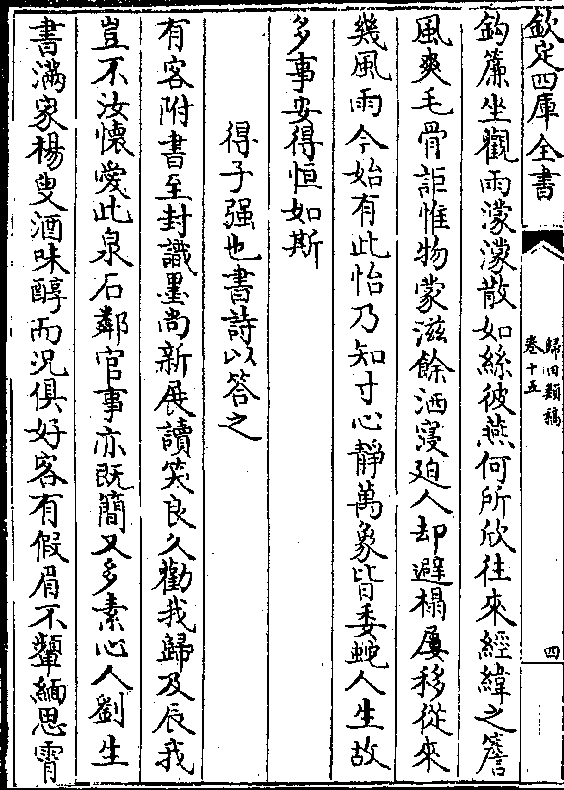 欽定四庫全書
歸田類稿
卷十五
四
鈎簾坐觀雨濛濛散如絲彼燕何所欣往來經緯之簷
風爽毛骨詎惟物蒙滋餘洒寖廹人却避榻屢移從來
幾風雨今始有此怡乃知寸心靜萬象皆委蛇人生故
多事安得恒如斯
得子强也書詩以答之
有客附書至封識墨尚新展讀笑良久勸我歸及辰我
豈不汝懷愛此泉石鄰官事亦既簡又多素心人劉生
書滿家楊叟酒味醇而况俱好客有假眉不顰緬思霄